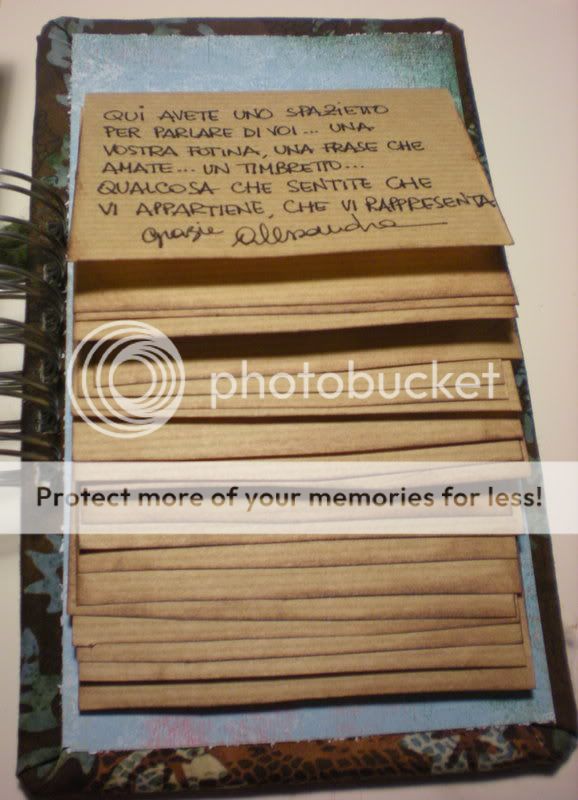 QUI AVETE UNO SPAZIETTO
PER PARLARE DI VOI... UNA
VOSTRA FOTINA, UNA FRASE CHE
AMATE... UN TIMBRETTO...
QUALCOSA CHE SENTITE CHE
VI APPARTIENE, CHE VI RAPPRESENTA
Grazie Alessandra
photobucket
Protect more of your memories for less!